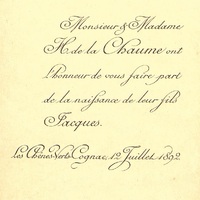 Monsieur & Madame
H. de la Chaume ont
l'honneur de vous faire part
de la naissance de leur fils
Jacques.
Les Chênes Verts Cognac, 12 Juillet 1892